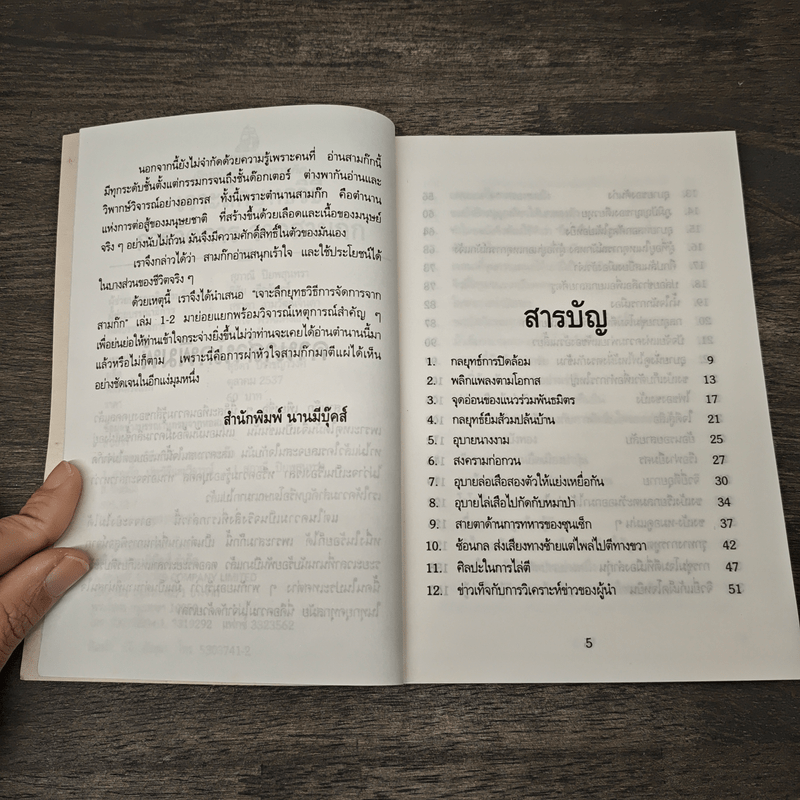 นอกจากนี้ยังไม่จำกัดด้วยความรู้เพราะคนที่ อ่านสามก๊กนี้
มีทุกระดับชั้นตั้งแต่กรรมกรจนถึงชั้นด๊อกเตอร์ ต่างพากันอ่านและ
วิพากษ์วิจารณ์อย่างออกรส ทั้งนี้เพราะตำนานสามก๊ก คือตำนาน
แห่งการต่อสู้ของมนุษยชาติ ที่สร้างขึ้นด้วยเลือดและเนื้อของมนุษย์
จริง ๆ อย่างนับไม่ถ้วน มันจึงมีความศักดิ์สิทธิ์ในตัวของมันเอง
เราจึงกล่าวได้ว่า สามก๊กอ่านสนุกเร้าใจ และใช้ประโยชน์ได้
ในบางส่วนของชีวิตจริง ๆ
ด้วยเหตุนี้ เราจึงได้นำเสนอ "เจาะลึกยุทธวิธีการจัดการจาก
สามก๊ก" เล่ม 1-2 มาย่อยแยกพร้อมวิจารณ์เหตุการณ์สำคัญ ๆ
เพื่อย่นย่อให้ท่านเข้าใจกระจ่างยิ่งขึ้นไม่ว่าท่านจะเคยได้อ่านตำนานนี้มา
แล้วหรือไม่ก็ตาม เพราะนี่คือการผ่าหัวใจสามก๊กมาตีแผ่ได้เห็น
อย่างชัดเจนในอีกแง่มุมหนึ่ง
สำนักพิมพ์ นานมีบุ๊คส์
สารบัญ
1. กลยุทธ์การปิดล้อม 9
2. พลิกแพลงตามโอกาส 13
3. จุดอ่อนของแนวร่วมพันธมิตร 17
4. กลยุทธ์ยืมส้วมปล้นบ้าน 21
5. อุบายนางงาม 25
6. สงครามก่อกวน 27
7. อุบายล่อเสือสองตัวให้แย่งเหยื่อกัน 30
8. อุบายไล่เสือไปกัดกับหมาป่า 34
9. สายตาด้านการทหารของซุนเซ็ก 37
10. ซ้อนกล ส่งเสียงทางซ้ายแต่ไพล่ไปตีทางขวา 42
11. ศิลปะในการไล่ตี 47
12. ข่าวเท็จกับการวิเคราะห์ข่าวของผู้นำ 51
5